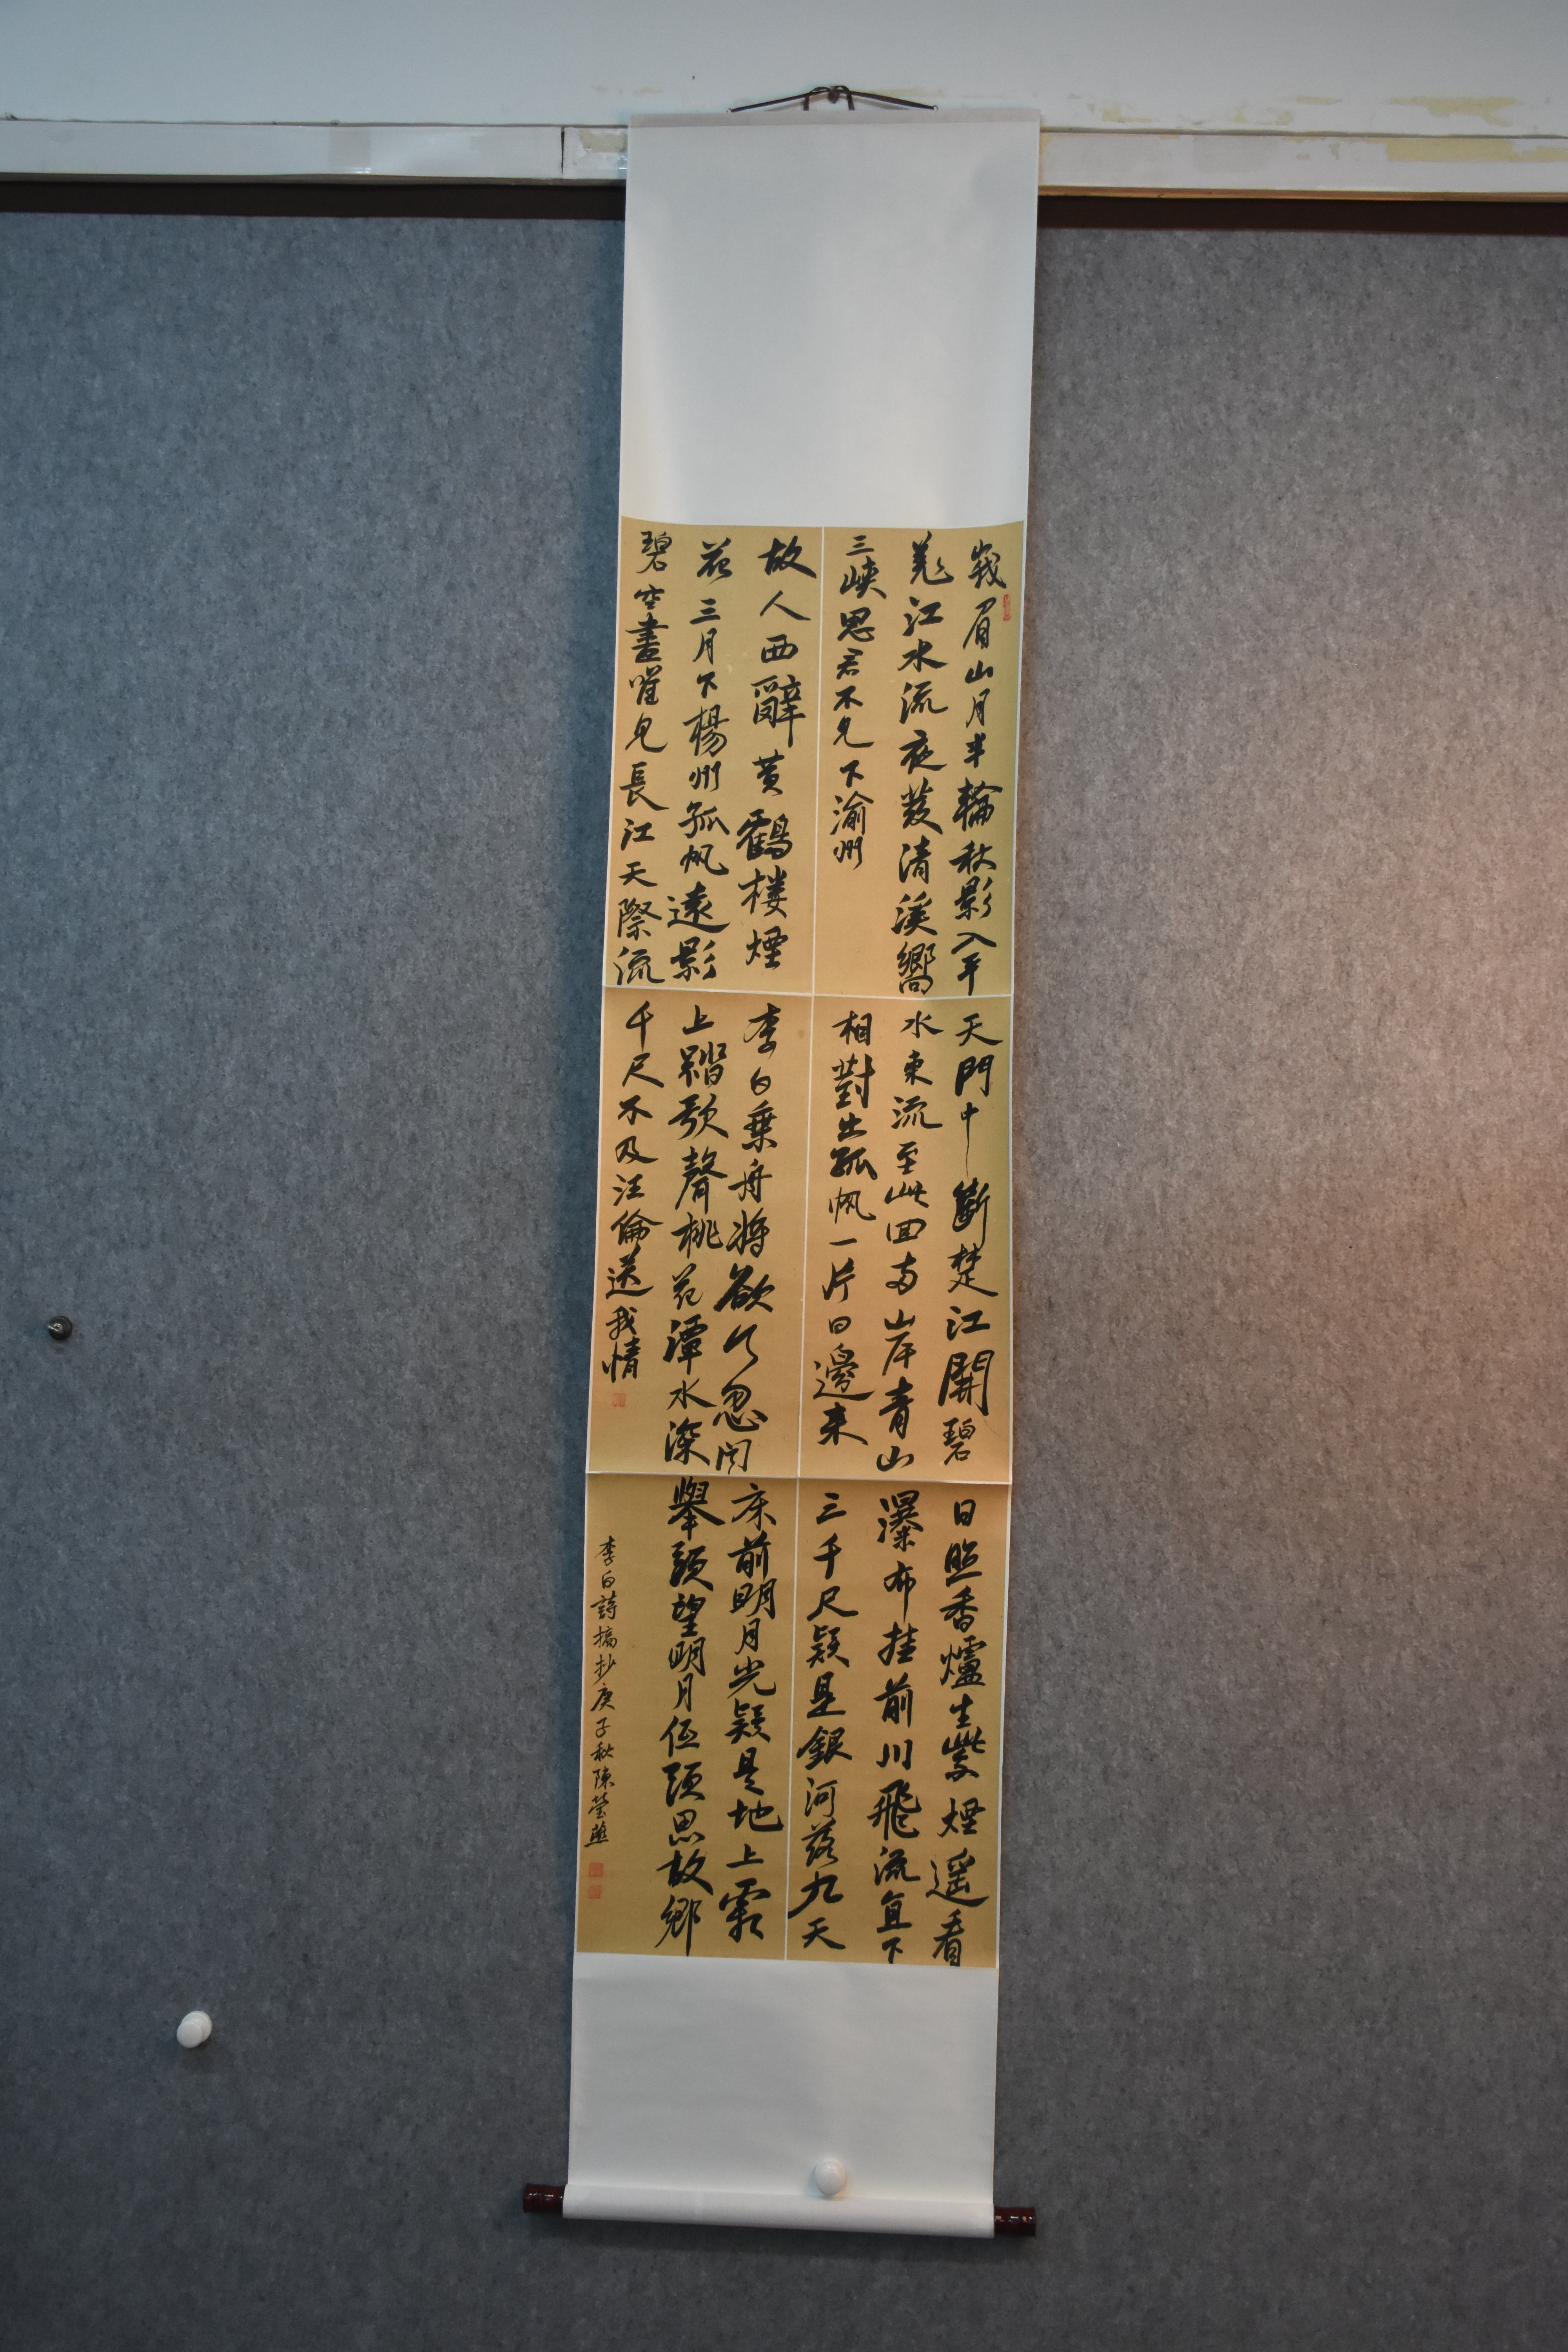 峩眉山月半輪秋影入平
羌江水流夜發清溪嚮
三峽思君不見下渝州
天門中斷楚江開碧
水東流至此回两岸青山
相對出孤帆一片日邊来
日照香爐生紫煙遥看
瀑布挂前川飛流直下
三千尺疑是銀河落九天
故人西辭黄鶴楼煙
花三月下楊州孤帆遠影
碧空盡唯見長江天際流
李白乗舟将欲行忽闻
上踏歌聲桃花潭水深
千尺不及汪倫送我情
床前明月光疑是地上霜
舉頭望明月低頭思故鄉
李白詩摘抄庚子秋陳瑩